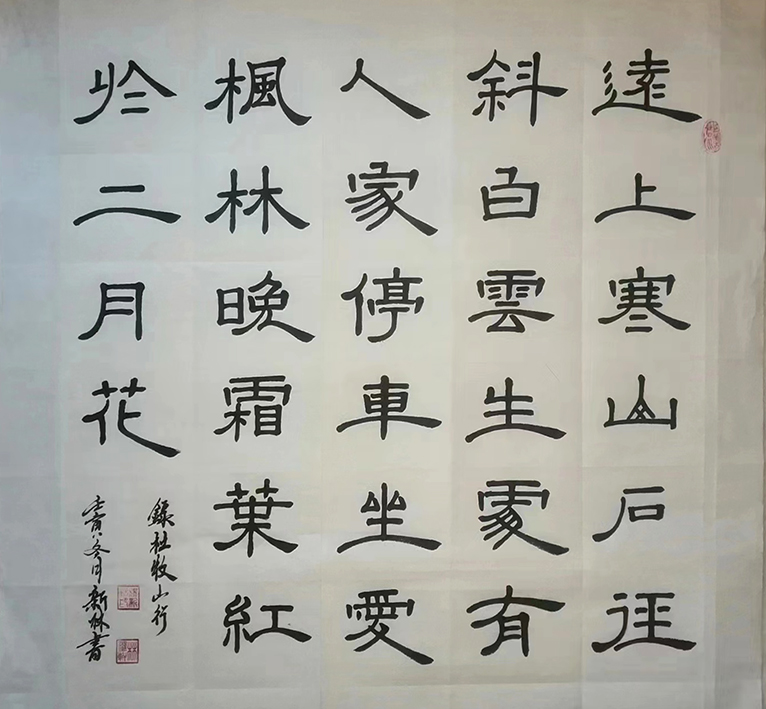 遠上寒山石徑
斜白雲生處有
人家停車坐愛
楓林晚霜葉紅
於二月花
錄杜牧山行
壬寅冬月新林書